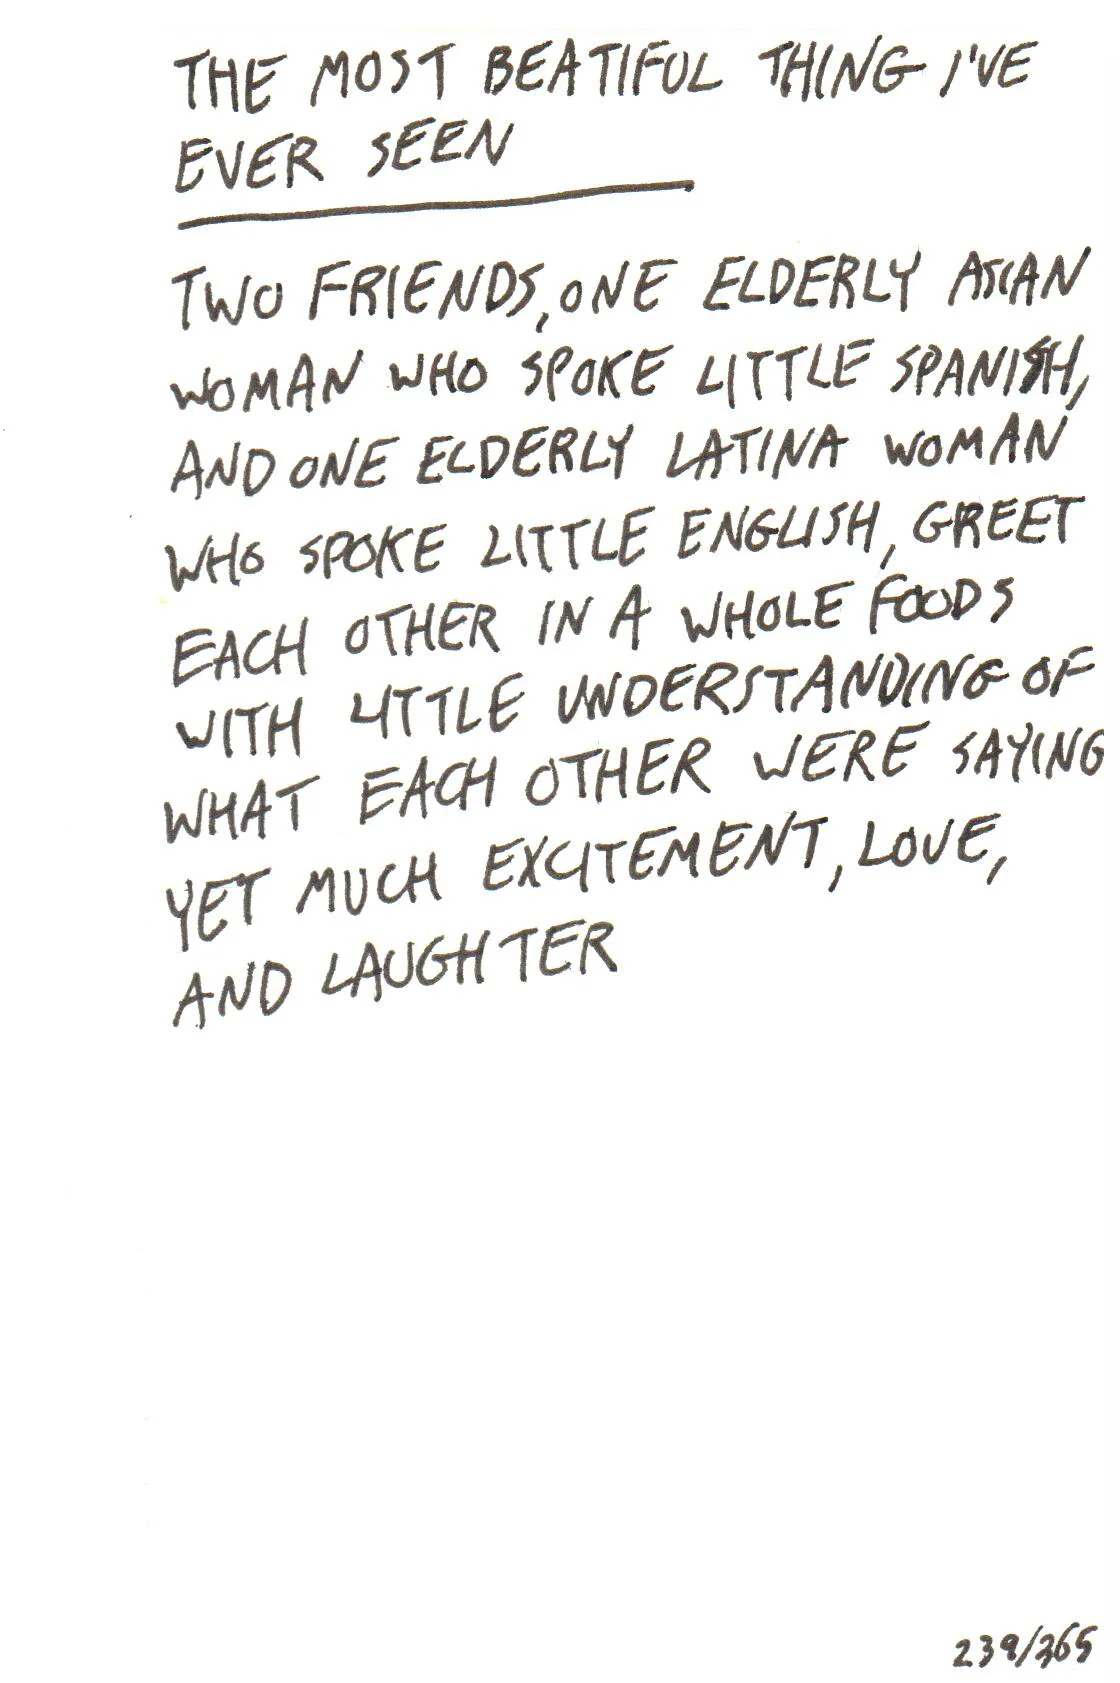 THE MOST BEATIFUL THING I'VE
EVER SEEN
TWO FRIENDS, ONE ELDERLY ASIAN
WOMAN WHO SPOKE LITTLE SPANISH,
AND ONE ELDERLY LATINA WOMAN
WHO SPOKE LITTLE ENGLISH, GREET
EACH OTHER IN A WHOLE FOODS
WITH LITTLE UNDERSTANDING OF
WHAT EACH OTHER WERE SAYING
YET MUCH EXCITEMENT, LOVE,
AND LAUGHTER
239/365